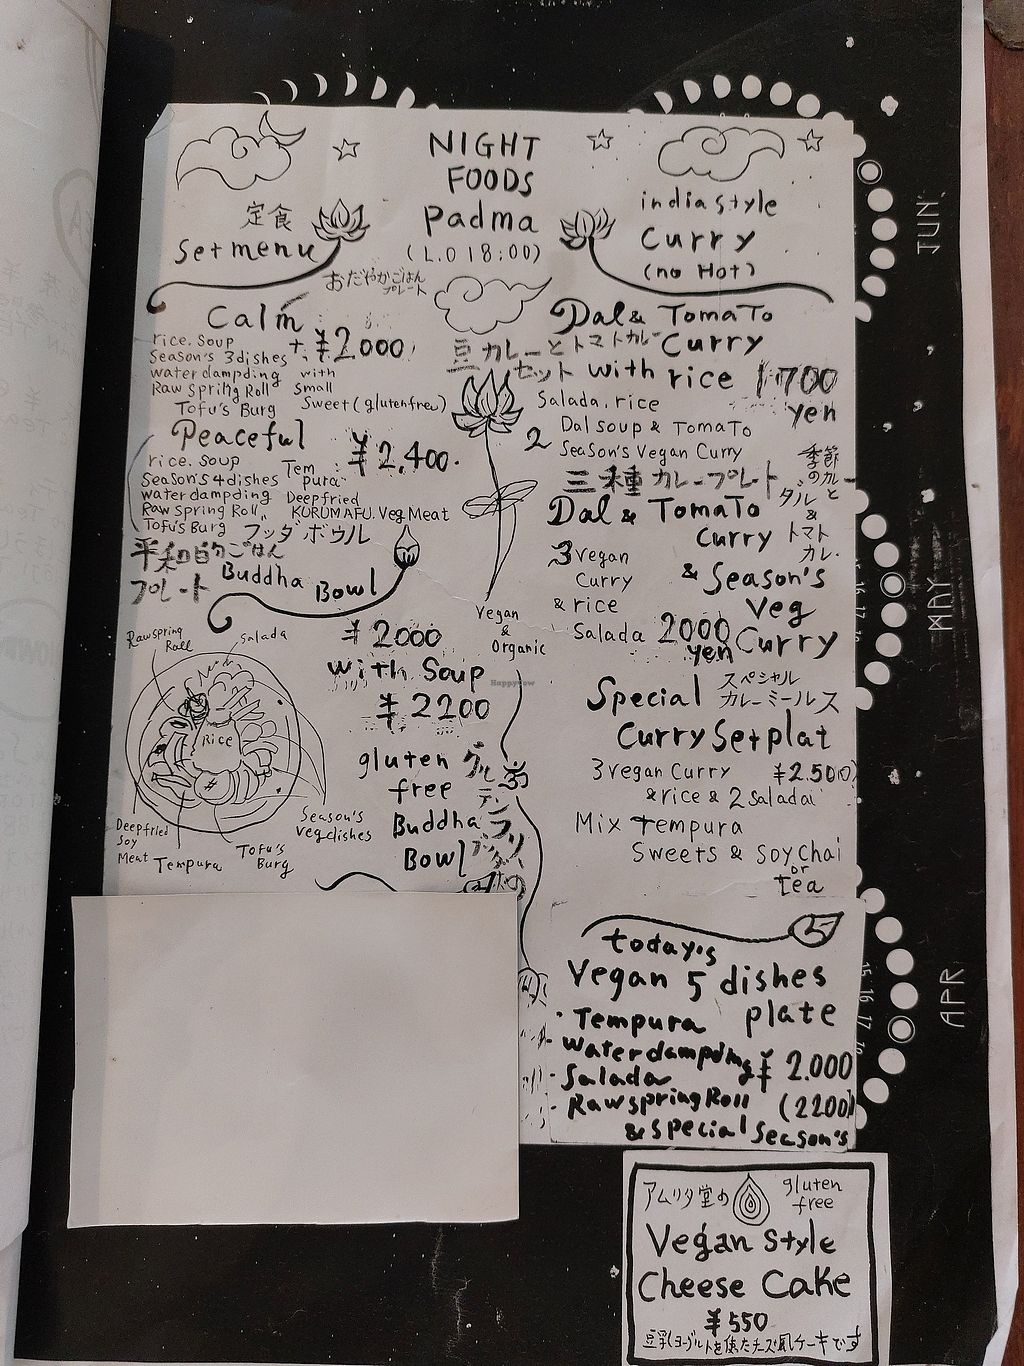 NIGHT
FOODS
Padma
(L.O 18:00)
定食
Set menu
おだやかごはん
プレート
Calm
¥2.000
rice. soup
Season's 3dishes
water dampding
Raw Spring Roll
Tofu's Burg
with
small
Sweet (glutenfree)
Peaceful
¥2,400.
rice. soup
Season's 4dishes
water dampding
Raw Spring Roll
Tofu's Burg
Tem
pura
Deepfried
KURUMAFU. Veg Meat
平和的ごはん
プレート
ブッダボウル
Buddha Bowl
¥2000
with Soup
¥2200
Rawspring
Roll
Salada
Rice
Deepfried
Soy
Meat
Tempura
Tofu's
Burg
Season's
Vegdishes
gluten
free
Buddha
Bowl
Vegan
&
Organic
india style
Curry
(no Hot)
Dal & TomaTo
Curry
豆カレーとトマトカレー
セット
with rice
1700
yen
Salada, rice
Dal soup & TomaTo
2
Season's Vegan Curry
三種カレープレート
季節
のカレーと
ダル&
トマト
カレー
Dal & TomaTo
Curry
& Season's
Veg
Curry
3 vegan
Curry
& rice
Salada
2000
yen
Special
スペシャル
カレーミールス
Curry Set plat
3 vegan Curry
¥2.500
& rice & 2 Saladai
Mix Tempura
Sweets & soy chai
or
tea
today's
Vegan 5 dishes
plate
・Tempura
・Waterdampding
・Salada
・Rawspring Roll
& Special Season's
¥2.000
(2200)
アムリタ堂の
gluten
free
Vegan Style
Cheese Cake
¥550
豆乳ヨーグルトを使ったチーズ風ケーキです
JUN
MAY
APR
HappyCow